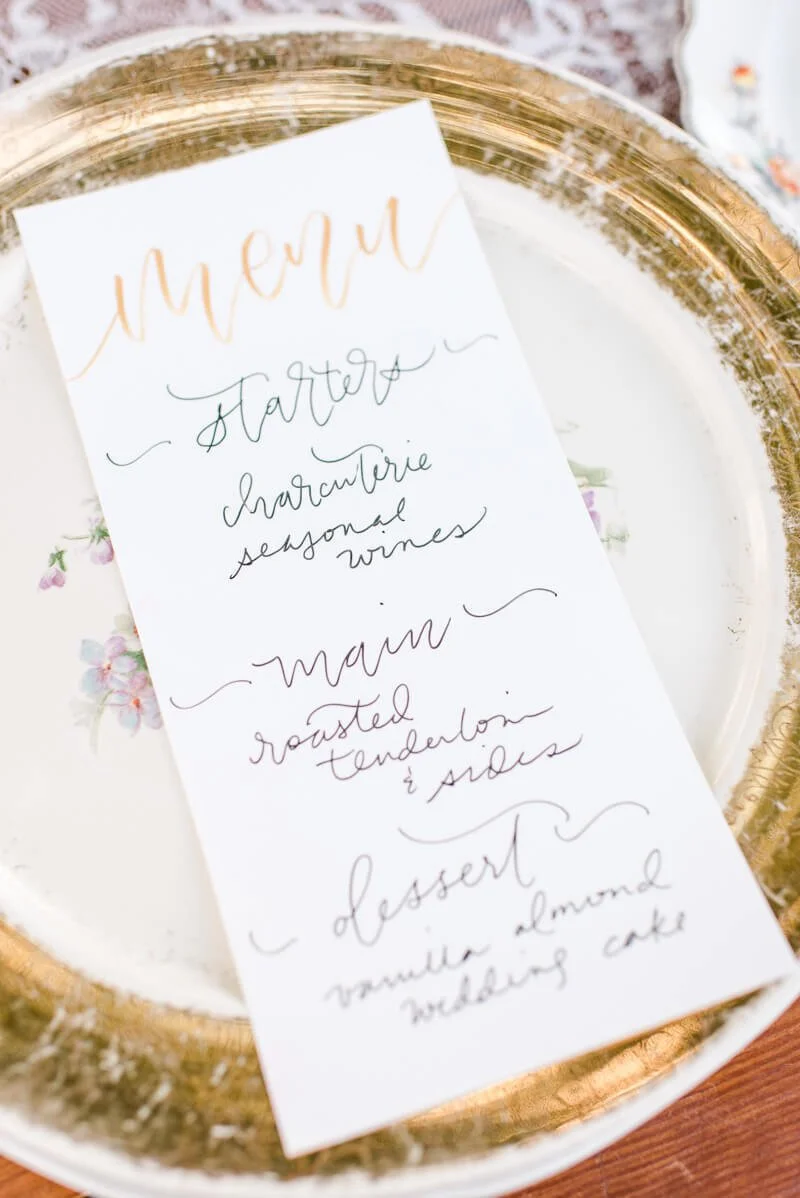 menu
starters
charcuterie
seasonal
wines
main
roasted
tenderloin
& sides
dessert
vanilla almond
wedding cake